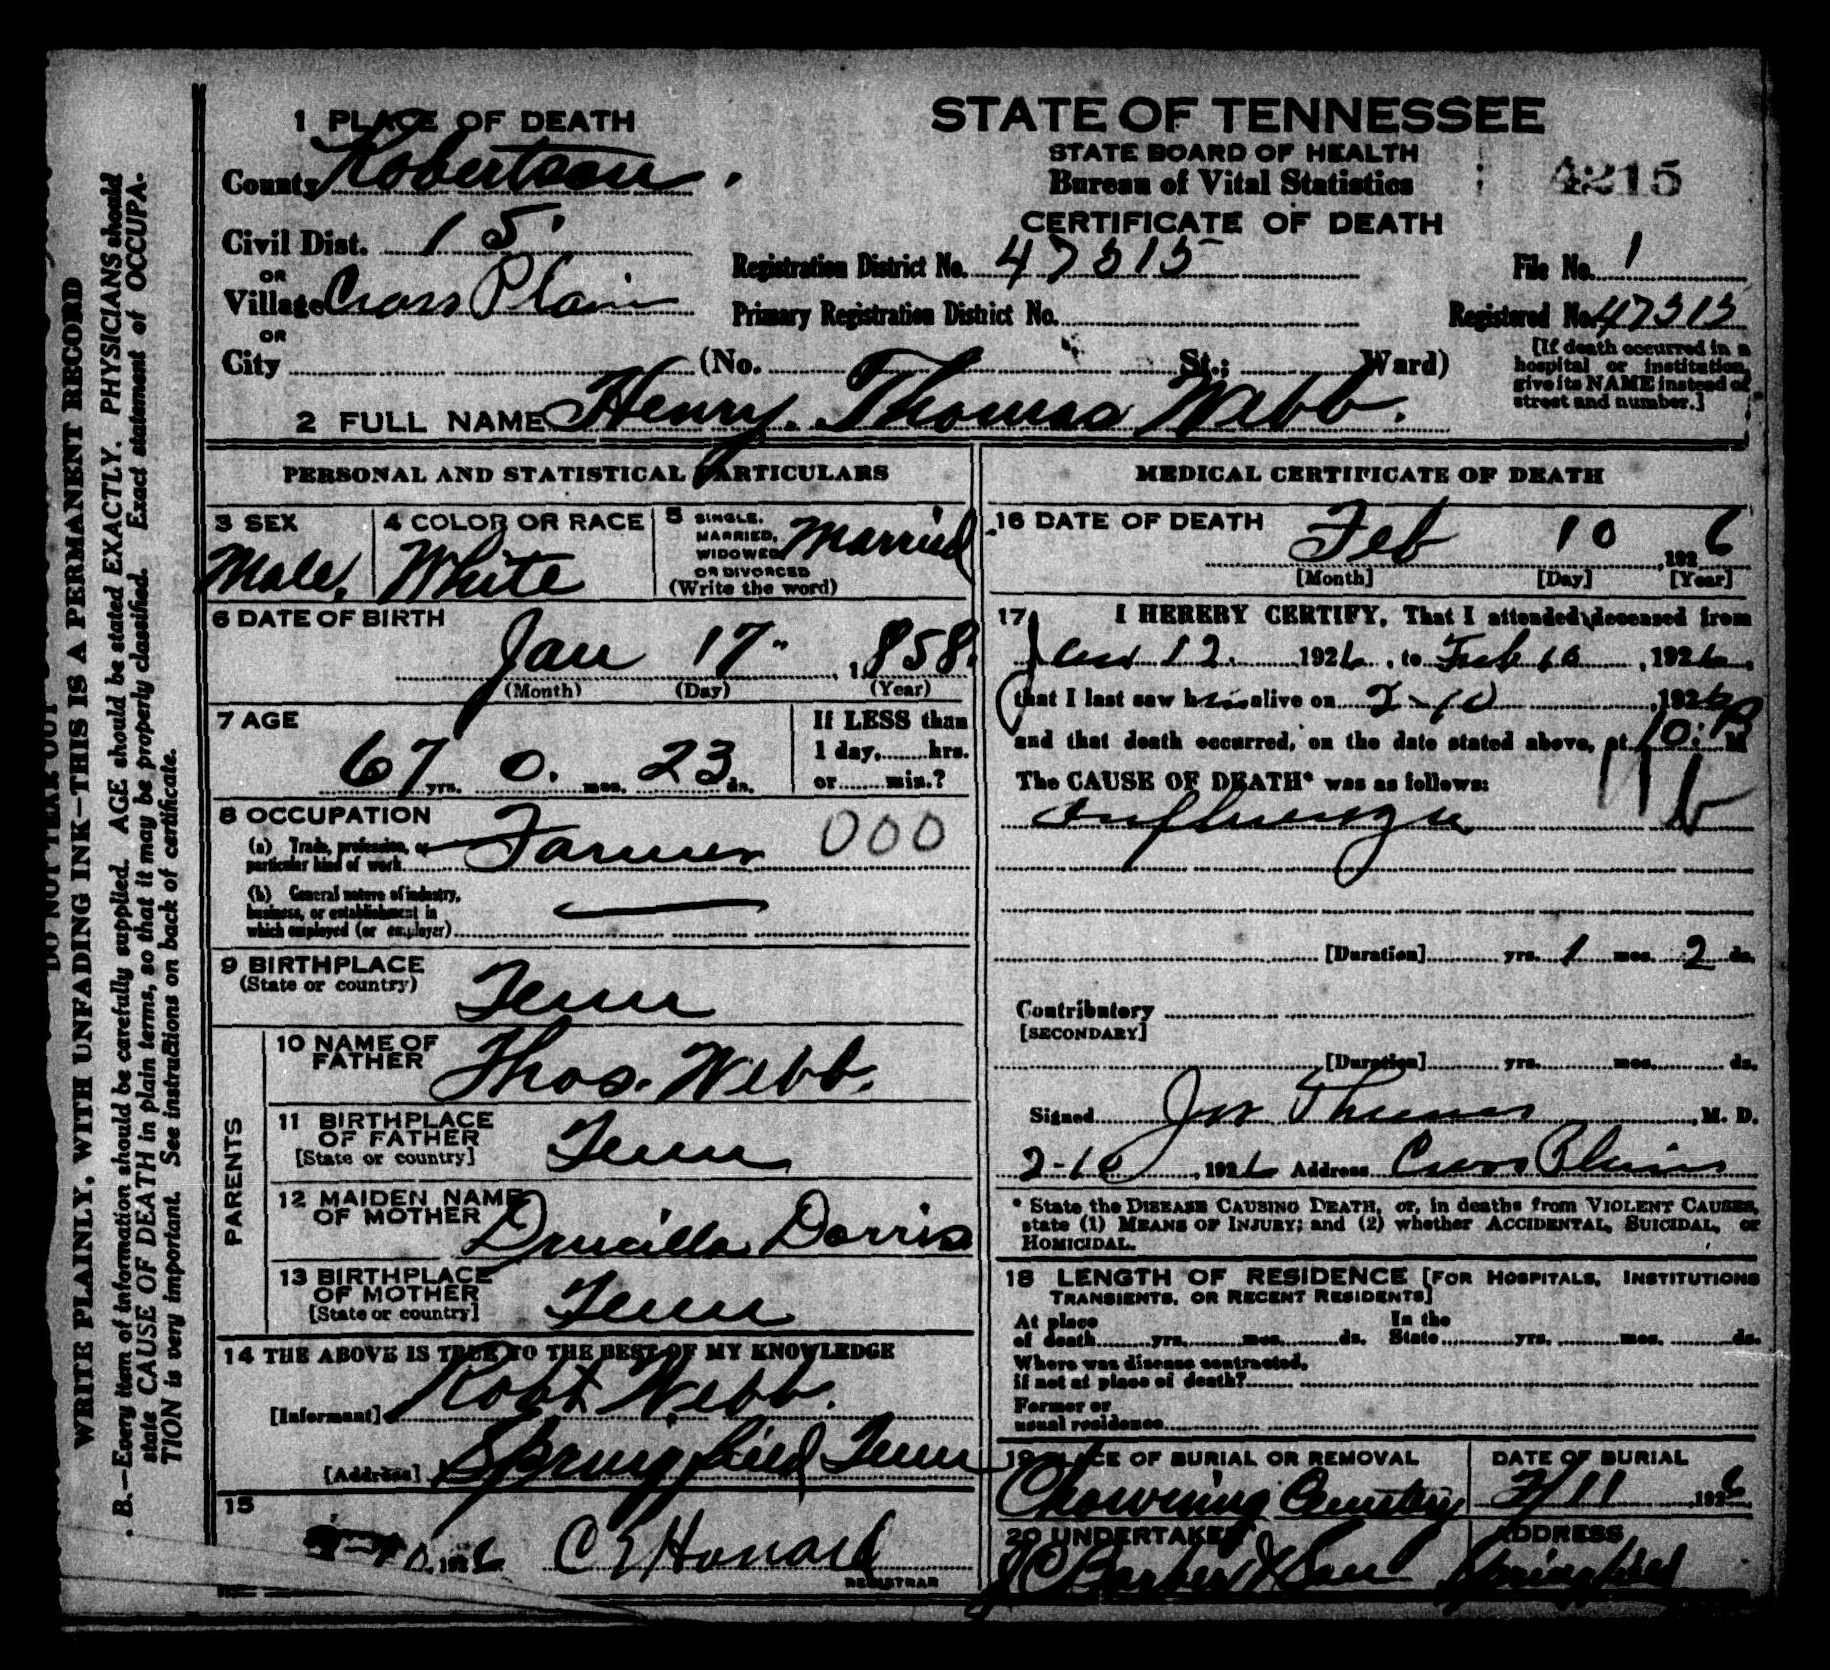 1 PLACE OF DEATH
County Robertson.
Civil Dist. 15.
OR
Village Cross Plain
OR
City (No. St.; Ward)
2 FULL NAME Henry. Thomas Webb.
STATE OF TENNESSEE
STATE BOARD OF HEALTH
Bureau of Vital Statistics
CERTIFICATE OF DEATH
4215
Registration District No. 47315
File No. 1
Primary Registration District No.
Registered No. 47315
[If death occurred in a
hospital or institution,
give its NAME instead of
street and number.]
PERSONAL AND STATISTICAL PARTICULARS
3 SEX
Male.
4 COLOR OR RACE
White
5 SINGLE,
MARRIED,
WIDOWED
OR DIVORCED
(Write the word)
Married
6 DATE OF BIRTH
Jan 17 1858.
(Month) (Day) (Year)
7 AGE
67 yrs. 0. mos. 23 ds.
If LESS than
1 day,........hrs.
or........min.?
8 OCCUPATION
(a) Trade, profession, or
particular kind of work Farmer 000
(b) General nature of industry,
business, or establishment in
which employed (or employer)
9 BIRTHPLACE
(State or country)
Tenn
PARENTS
10 NAME OF
FATHER
Thos. Webb.
11 BIRTHPLACE
OF FATHER
[State or country]
Tenn
12 MAIDEN NAME
OF MOTHER
Drucilla Dorris
13 BIRTHPLACE
OF MOTHER
[State or country]
Tenn
14 THE ABOVE IS TRUE TO THE BEST OF MY KNOWLEDGE
[Informant] Robt Webb.
[Address] Springfield Tenn
15
1926 C E Honard
REGISTRAR
MEDICAL CERTIFICATE OF DEATH
16 DATE OF DEATH
Feb 10, 1926
[Month] [Day] [Year]
17 I HEREBY CERTIFY, That I attended deceased from
Jan 12. 1926, to Feb 10, 1926,
that I last saw him alive on 2-10, 1926
and that death occurred, on the date stated above, at 10: P M
The CAUSE OF DEATH* was as follows:
Influenza
11b
[Duration] yrs. 1 mos. 2 ds.
Contributory
[SECONDARY]
[Duration] yrs. mos. ds.
Signed, M. D.
2-10, 1926 Address Cross Plains
* State the DISEASE CAUSING DEATH, or, in deaths from VIOLENT CAUSES,
state (1) MEANS OF INJURY; and (2) whether ACCIDENTAL, SUICIDAL, or
HOMICIDAL.
18 LENGTH OF RESIDENCE [FOR HOSPITALS, INSTITUTIONS
TRANSIENTS, OR RECENT RESIDENTS]
At place In the
of death yrs. mos. ds. State yrs. mos. ds.
Where was disease contracted,
if not at place of death?
Former or
usual residence
19 PLACE OF BURIAL OR REMOVAL
Chowning Cemetery
DATE OF BURIAL
2/11 1926
20 UNDERTAKER
J C Barber & Son
ADDRESS
Springfield
DO NOT TEAR OUT
WRITE PLAINLY, WITH UNFADING INK—THIS IS A PERMANENT RECORD
. B.—Every item of information should be carefully supplied. AGE should be stated EXACTLY. PHYSICIANS should
state CAUSE OF DEATH in plain terms, so that it may be properly classified. Exact statement of OCCUPA-
TION is very important. See instructions on back of certificate.